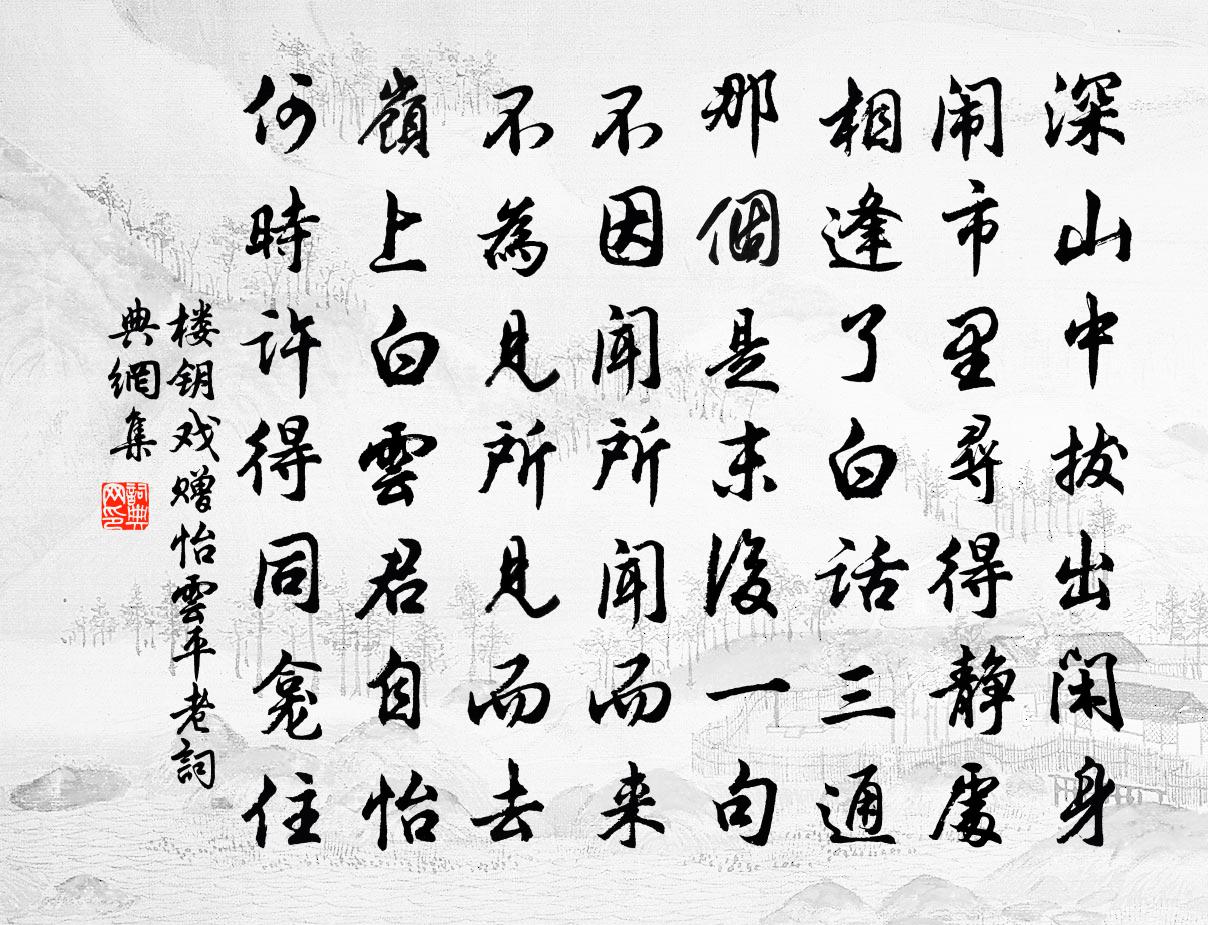 深山中拔出闲身
闹市里尋得静處
相逢了白话三通
那個是末後一句
不因闻所闻而来
不為見所見而去
嶺上白雲君自怡
何時許得同龛住
楼钥戏赠怡雲平老詞
典網集
詞典网印